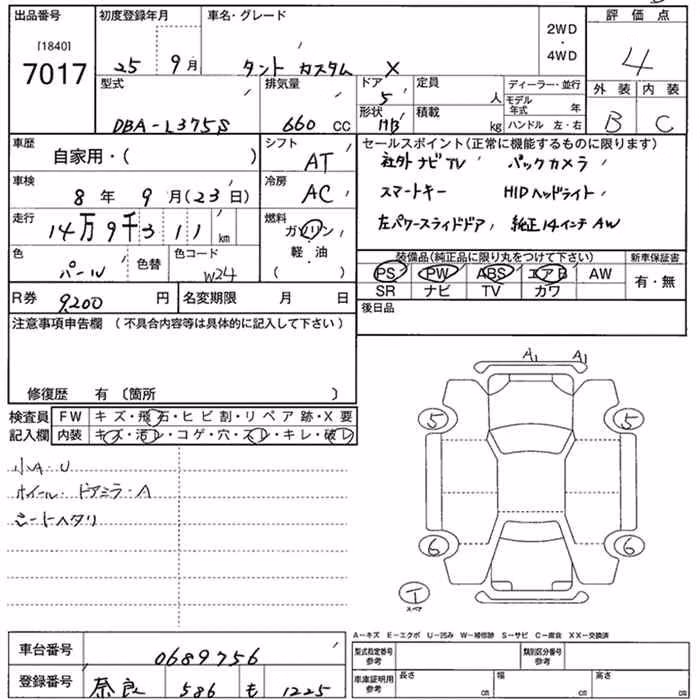 出品番号 初度登録年月 車名・グレード 評価点
［1840］
7017
25 9月 タント カスタム X
2WD
・
4WD
4
型式 排気量 ドア 定員 ディーラー・並行 外装 内装
DBA-L375S 660 CC 5 人 モデル年式 年
形状 積載 ハンドル 左・右
HB kg B C
車歴 自家用・( ) シフト AT
セールスポイント(正常に機能するものに限ります)
社外ナビTV バックカメラ
車検 8年 9月(23日) 冷房 AC
スマートキー HIDヘッドライト
走行 14万9千311 km 燃料 ガソリン
左パワースライドドア 純正14インチAW
軽・油
( )
色 パール 色替 色コード W24
装備品(純正品に限り丸をつけて下さい) 新車保証書
PS PW ABS エアB AW 有・無
SR ナビ TV カワ
R券 9,200 円 名変期限 月 日
後日品
注意事項申告欄 (不具合内容等は具体的に記入して下さい)
修復歴 有 〔箇所 〕
検査員 FW キズ・飛石・ヒビ割・リペア跡・X要
記入欄 内装 キズ・汚レ・コゲ・穴・スレ・キレ・破レ
小A・U
ホイール・ドアミラーA
シートヘタリ
A1 A1
5 5
6 6
T
スペア
A－キズ E－エクボ U－凹み W－補修跡 S－サビ C－腐食 XX－交換済
車台番号 0689756
型式指定番号 参考 類別区分番号 参考
登録番号 奈良 586 も 1225
車庫証明用 参考 長さ cm 幅 cm 高さ cm